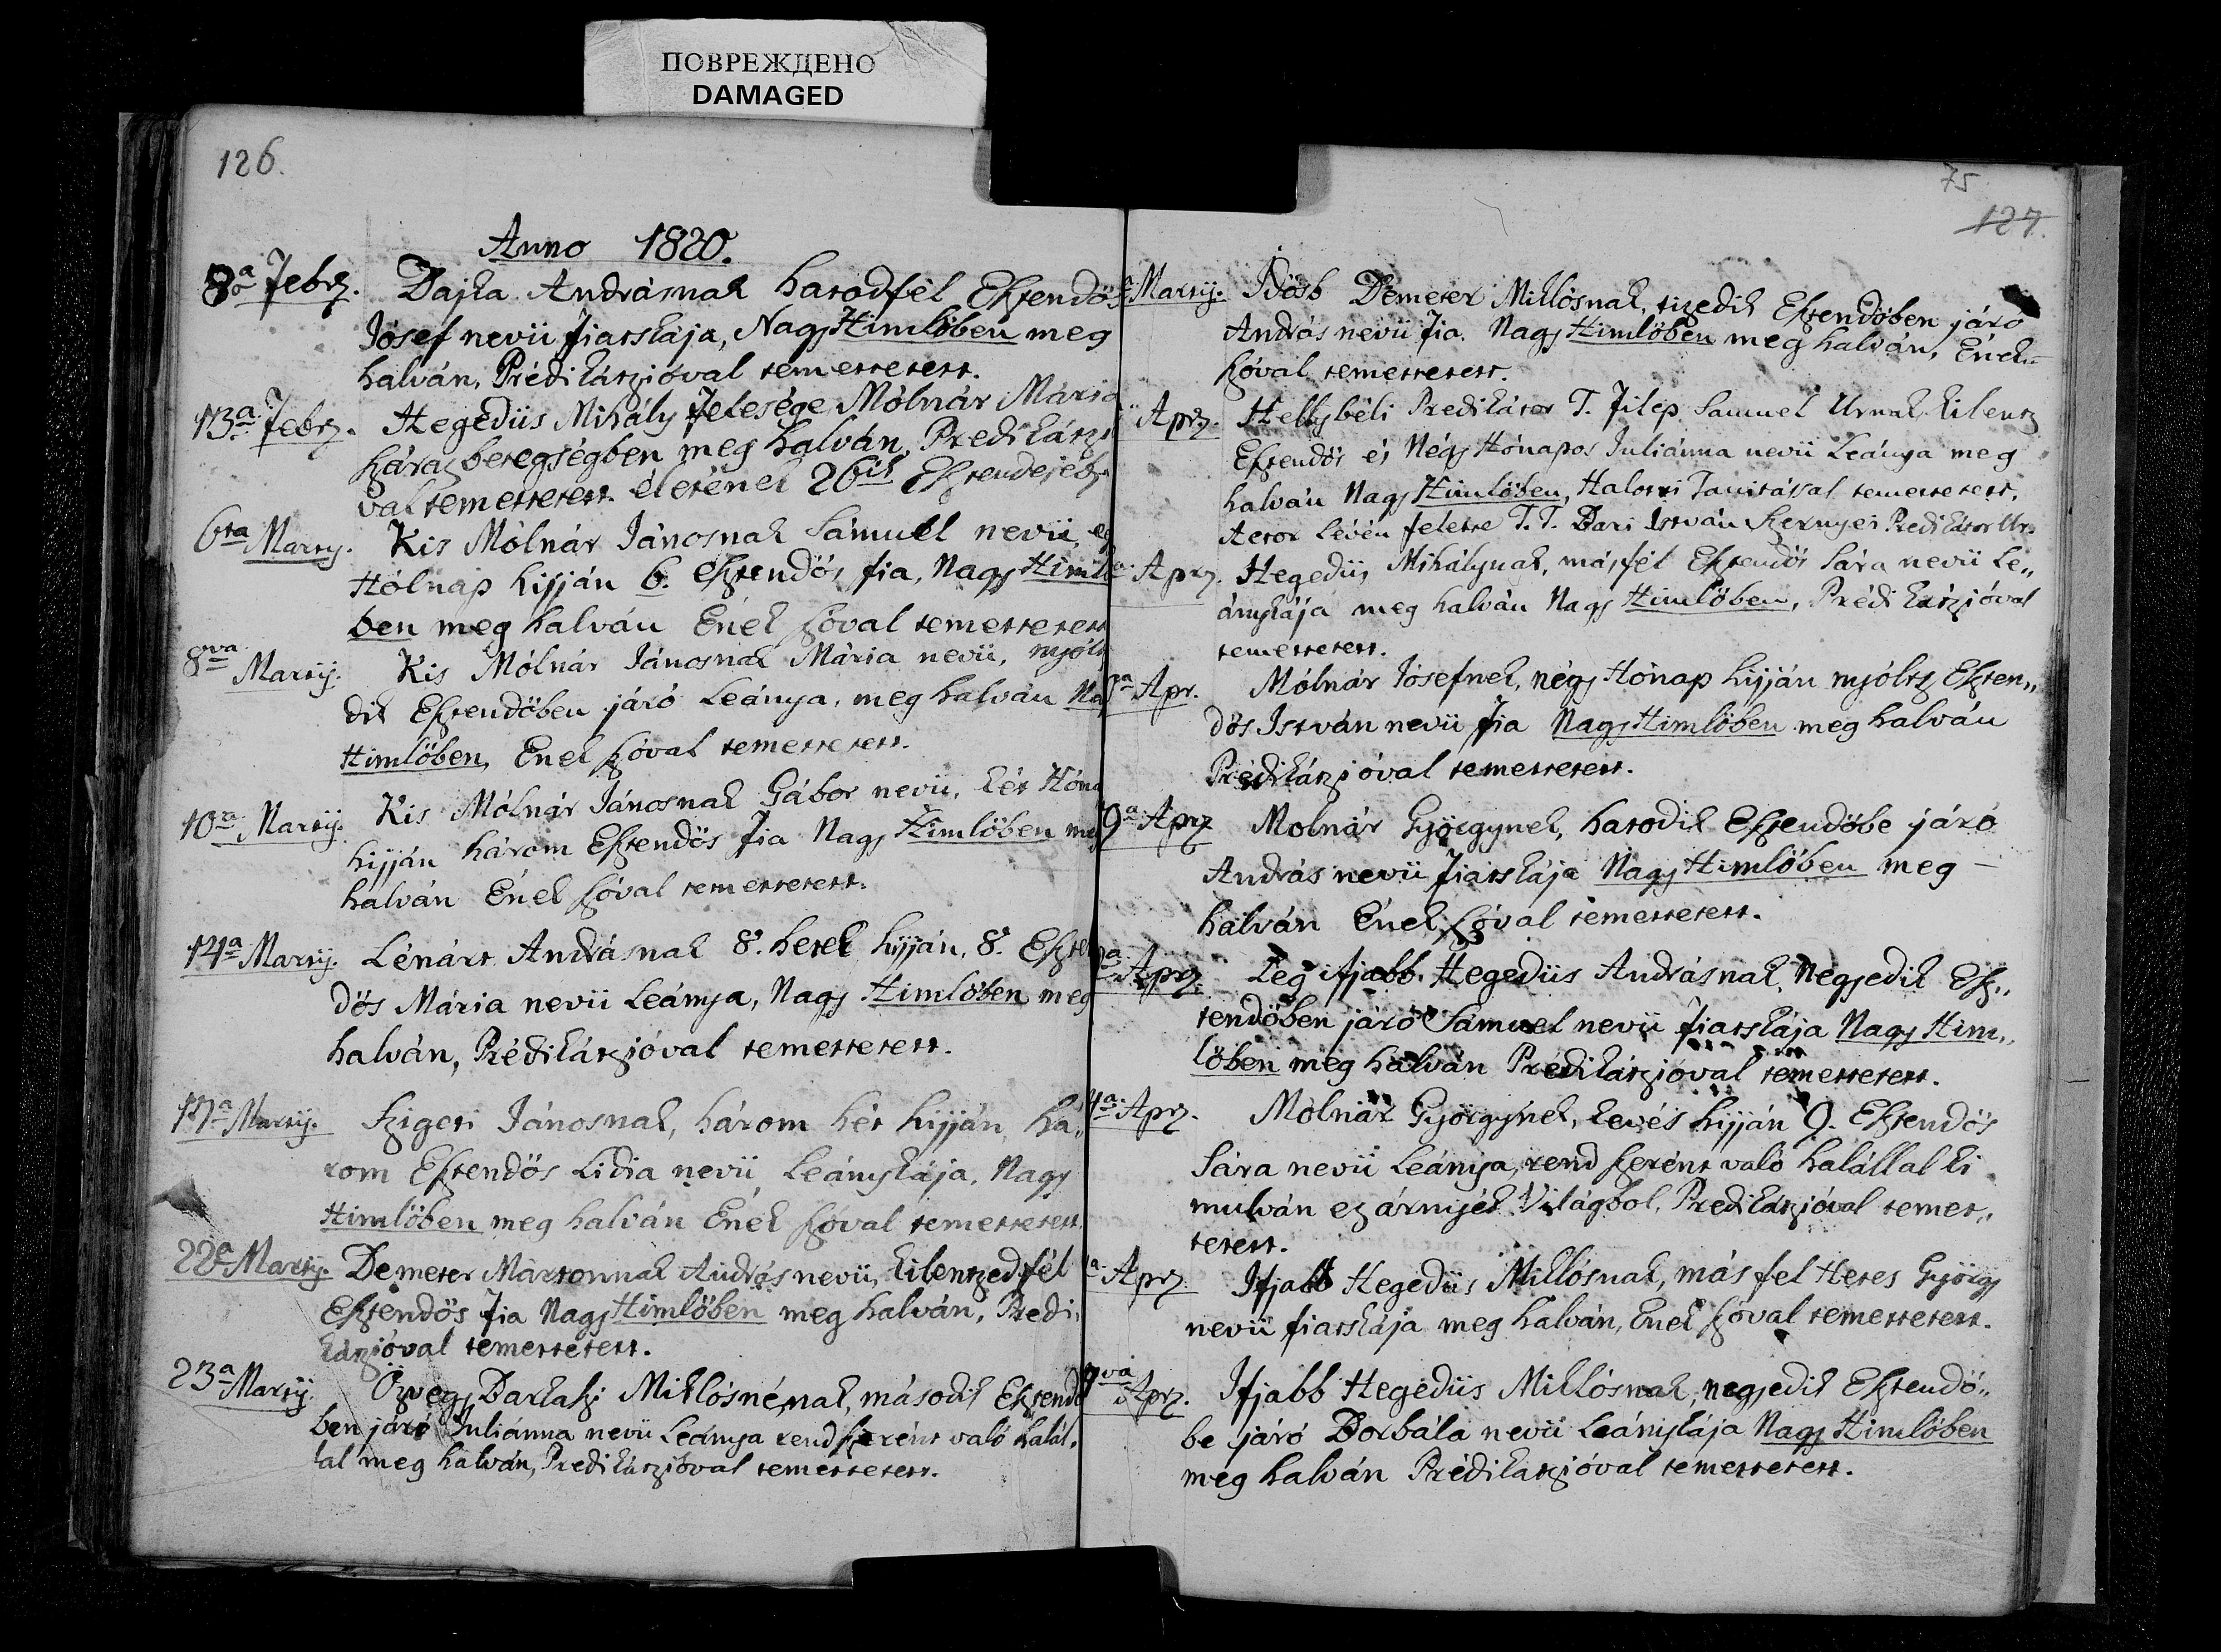 ПОВРЕЖДЕНО
DAMAGED
126.
Anno 1820.
8a Febr. Dajka Andrásnak hatodfél Esztendős
Jósef nevü fiatskája, Nagy Himlőben meg
halván, Prédikátzióval temettetett.
13a Febr. Hegedüs Mihály Felesége Mólnár Mária
száraz betegségben meg halván, Predikátzi
val temettetett életének 26ik Esztendejéb.
6ta Marty. Kis Mólnár Jánosnak Sámuel nevü, eg
Hólnap hijján 6. esztendős fia, Nagy Himlő
ben meg halván Ének szóval temettetett
8va Martij. Kis Mólnár Jánosnak Mária nevü, nyólt
dik Esztendőben járó Leánya, meg halván Na
Himlőben, Ének szóval temettetett.
10a Martij. Kis Mólnár Jánosnak Gábor nevü, két Hóna
hijján három Esztendős Fia Nagy Himlőben meg
halván Ének szóval temettetett.
14a Martij. Lénárt Andrásnak 8. hetek hijján, 8. Eszten
dős Mária nevü Leánya, Nagy Himlőben meg
halván, Prédikátzióval temettetett.
17a Martij. Szigeti Jánosnak, három hét hijján, há„
rom Esztendős Lidia nevü Leánykája, Nagy
Himlőben meg halván Ének szóval temettetett.
22a Martij. Demeter Mártonnak András nevü, kilentzedfél
Esztendős Fia Nagy Himlőben meg halván, Predi„
kátzióval temettetett.
23a Martij. Özvegy Barkaszi Miklósnénak, második Esztendő
ben járó Juliánna nevü Leánya rend szerént való halál„
lal meg halván, Predikátzióval temettetett.
75
127.
Martij. Idősb Demeter Miklósnak, tizedik Esztendőben járó
András nevü Fia Nagy Himlőben meg halván, Ének
szóval temettetett.
Apr. Hellybéli Predikátor T. Filep Samuel Urnak kilentz
Esztendős és Négy Hónapos Juliánna nevü Leánya meg
halván Nagy Himlőben, Halotti Tanitással temettetett,
tetor Lévén felette T.T. Bari István Szernyei Predikátor Ur.
Apr. Hegedüs Mihálynak, másfél Esztendős Sára nevü Le„
ánykája meg halván Nagy Himlőben, Prédikátzióval
temettetett.
Apr. Mólnár Jósefnek, négy Hónap hijján nyóltz Eszten„
dős István nevü Fia Nagy Himlőben meg halván
Prédikátzióval temettetett.
9a Apr. Molnár Györgynek, hatodik Esztendőbe járó
András nevü Fiatskája Nagy Himlőben meg
halván Ének szóval temettetett.
a Apr. Leg ifjabb Hegedüs Andrásnak, Negyedik Esz„
tendőben járó Sámuel nevü Fiatskája Nagy Him„
lőben meg halván Prédikátzióval temettetett.
a Apr. Mólnár Györgynek, kevés hijján 9. Esztendős
Sára nevü Leánya, rend szerént való halállal ki
mulván ez árnyék Világból, Predikátzióval temet„
tetett.
a Apr. Ifjabb Hegedüs Miklósnak, más fel Hetes György
nevü fiatskája meg halván, Ének szóval temettetett.
va Apr. Ifjabb Hegedüs Miklósnak, negyedik Esztendő„
be járó Borbála nevü Leánykája Nagy Himlőben
meg halván Prédikatzióval temettetett.